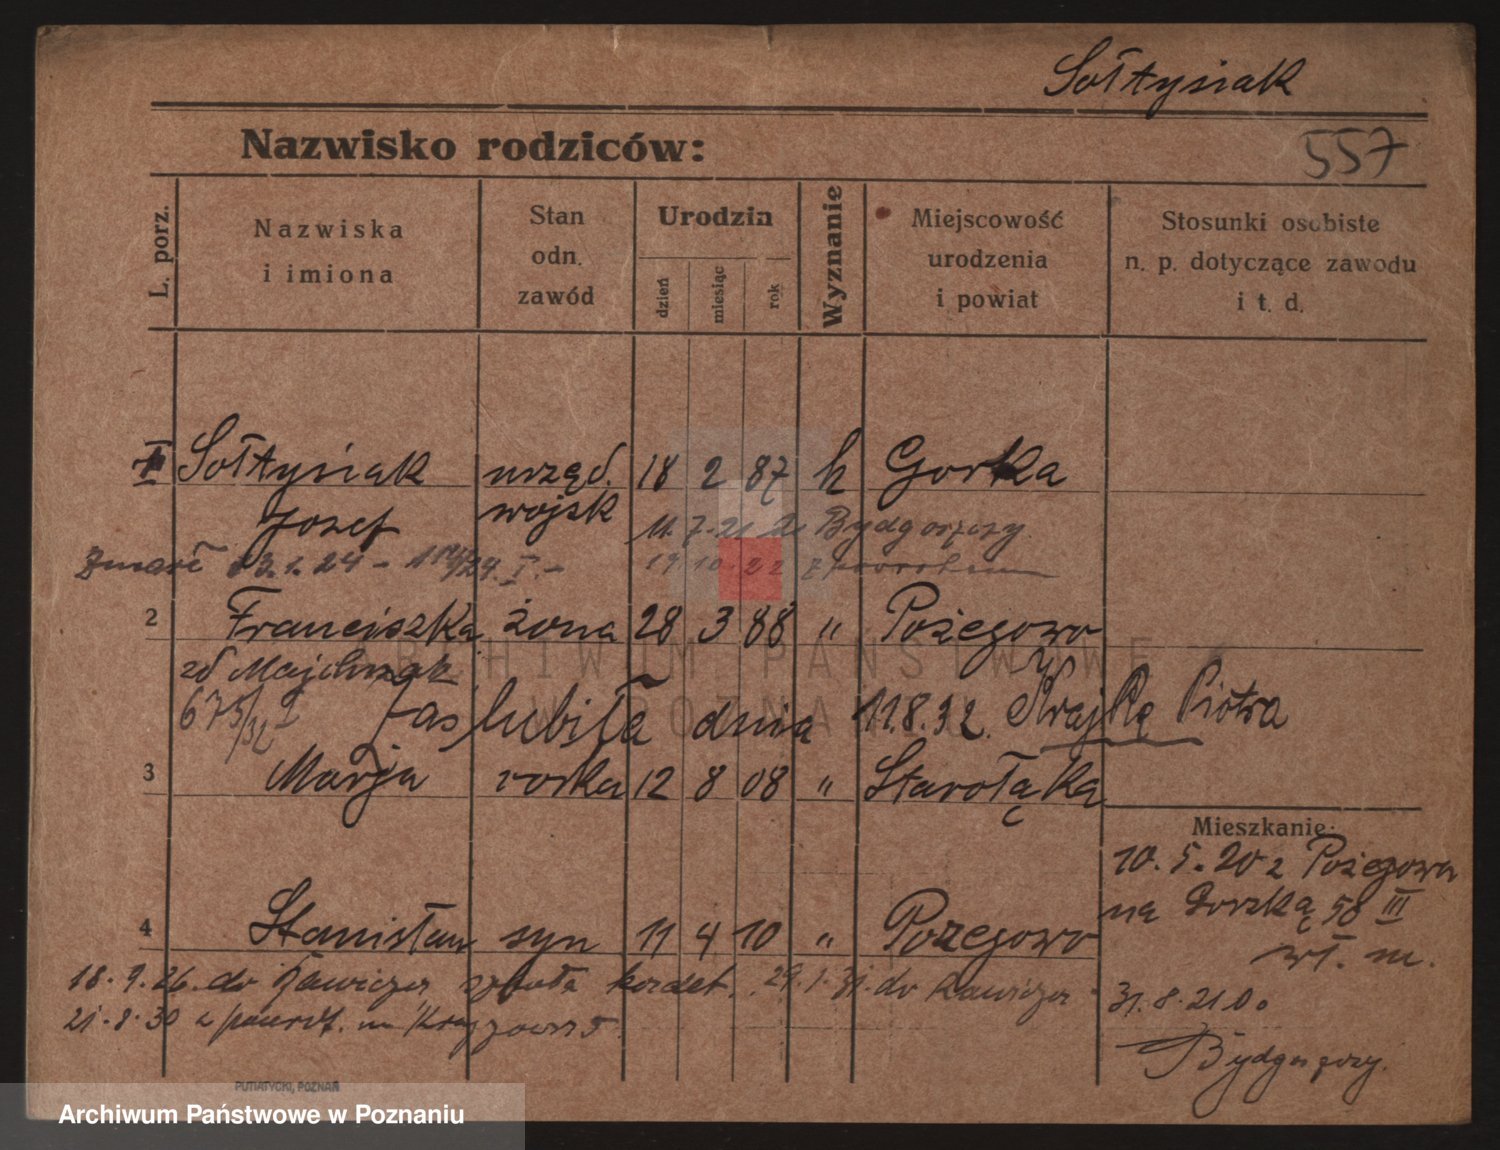 Sołtysiak
557
Nazwisko rodziców:
L. porz.
Nazwiska
i imiona
Stan
odn.
zawód
Urodzin
dzień
miesiąc
rok
Wyznanie
Miejscowość
urodzenia
i powiat
Stosunki osobiste
n. p. dotyczące zawodu
i t. d.
I Sołtysiak urzęd. 18 2 87 k Gorka
Jozef wojsk
11.7.21 z Bydgoszczy
Zmarł 13.1.24 - I. -
19.10.22 z powrotem
2 Franciszka żona 28 3 88 „ Pożegowo
zd Majchrzak
675/32 I zaślubiła dnia 11.8.32. Krajkę Piotra
3 Marja córka 12 8 08 „ Starołąka
Mieszkanie:
10.5.20 z Pożegowa
na 58 III
wł. m.
4 Stanisław syn 11 4 10 „ Pozegowo
18.9.26. do Rawicza szkoła kadet. 29.1.31. do Rawicza
31.8.21 Do
Bydgoszczy.
21.8.30 z powrót.
PUTIATYCKI, POZNAŃ
ARCHIWUM PAŃSTWOWE
W POZNANIU
Archiwum Państwowe w Poznaniu